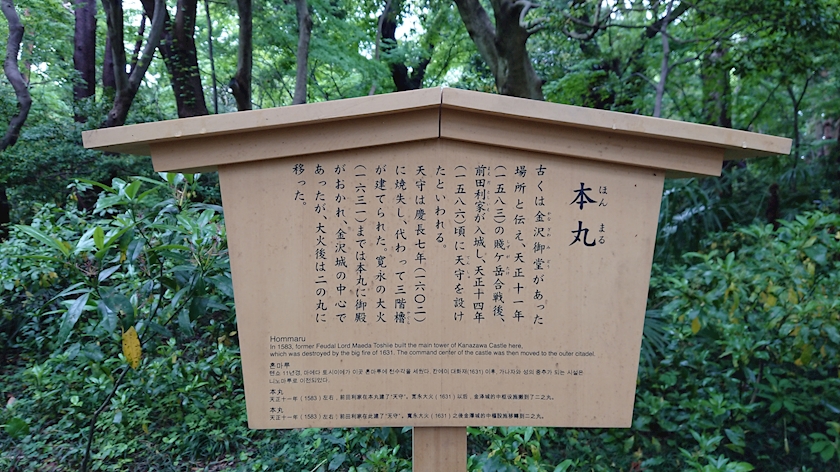 ほん まる
本丸
古くは金沢御堂があった
場所と伝え、天正十一年
（一五八三）の賤ケ岳合戦後、
前田利家が入城し、天正十四年
（一五八六）頃に天守を設け
たといわれる。
天守は慶長七年（一六〇二）
に焼失し、代わって三階櫓
が建てられた。寛永の大火
（一六三一）までは本丸に御殿
がおかれ、金沢城の中心で
あったが、大火後は二の丸に
移った。
Hommaru
In 1583, former Feudal Lord Maeda Toshiie built the main tower of Kanazawa Castle here,
which was destroyed by the big fire of 1631. The command center of the castle was then moved to the outer citadel.
혼마루
텐쇼 11년경, 마에다 토시이에가 이곳 혼마루에 천수각을 세웠다. 칸에이 대화재(1631) 이후, 가나자와 성의 중추가 되는 시설은
니노마루로 이전되었다.
本丸
天正十一年（1583）左右，前田利家在本丸建了"天守"。宽永大火（1631）以后，金泽城的中枢设施搬到了二之丸。
本丸
天正十一年（1583）左右，前田利家在此建了"天守"。寬永大火（1631）之後金澤城的中樞設施移轉到二之丸。